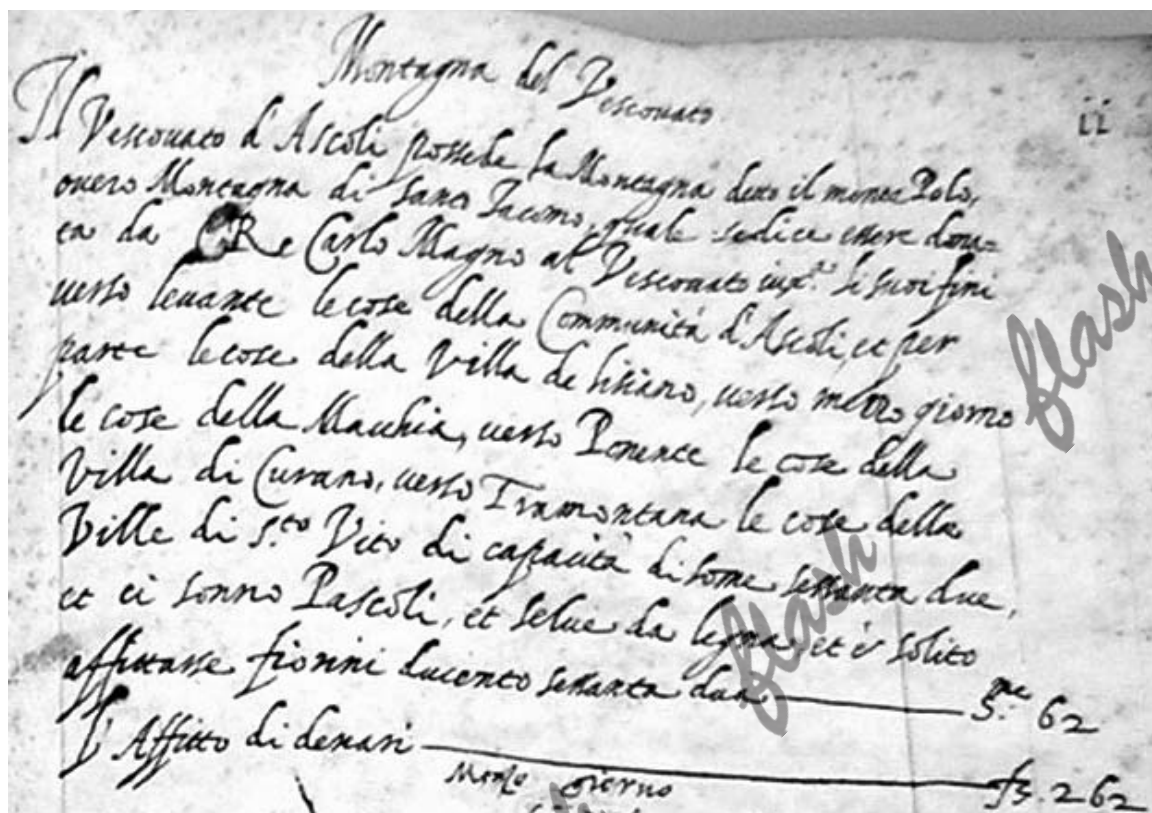 Montagna del Vescouato
ii
Il Vescouato d'Ascoli possede la Montagna detto il monte Polo,
ouero Montagna di Santo Iacomo, quale se dice essere dona=
ta da Re Carlo Magno al Vescouato li suoi fini
uerso leuante le cose della Communità d'Ascoli, et per
parte le cose della Villa de lisiano, uerso mezzo giorno
le cose della Macchia, uerso Ponente le cose della
Villa di Curano, uerso Tramontana le cose della
Ville di S.to Vito di capacità di some sessanta due,
et ci sonno Pascoli, et selue da legna, et è solito
affittarse fiorini ducento sessanta dua. — s.me 62
L'Affitto di denari — f3. 262
giorno
flash
flash